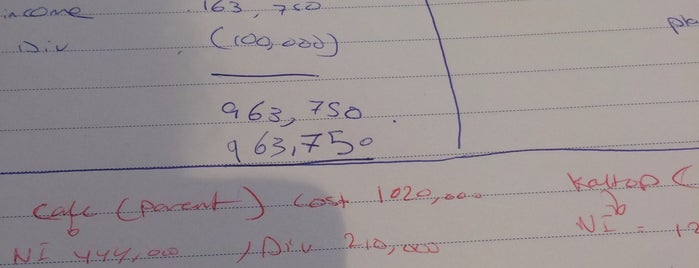 income 163,750
Div (100,000)
963,750
963,750
Cafe (parent) Cost 1020,000
NI 444,000 , Div 210,000
NI =